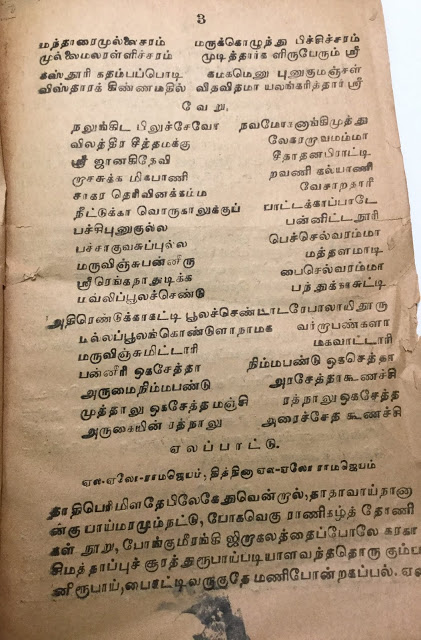 3
மந்தாரைமுல்லைசரம் மருக்கொழுந்து பிச்சிச்சரம்
முல்லைமலரள்ளிச்சரம் முடித்தார்க ளிருபேரும் ஸ்ரீ
கஸ்தூரி கதம்பப்பொடி கமகமெனு புனுகுமஞ்சள்
விஸ்தாரக் கிண்ணமதில் விதவிதமா யலங்கரித்தார்ஸ்ரீ
வேறு.
நலுங்கிட பிலுச்சேவோ நவமோனுங்கிமுத்து
விலத்தீர சீத்தமக்கு லேகாமுவமம்மா
ஸ்ரீ ஜானகிதேவி சீதாதனபிராட்டி
மூசசுக்க மிகபாணி றவணி கல்யாணி
சாகர தெரிவினக்கம்ம வேசாறதாரி
நீட்டுக்கா வொருகாலுக்குப் பாட்டக்காப்பாடே
பச்சிபுனுகுல்ல பன்னிட்டநூரி
பச்சாகுவசுப்புல்ல பெச்செல்வரம்மா
மருவிஞ்சுபன்னிரு மத்தளமாடி
ஸ்ரீரெங்கநாதுடிக்க பைசெல்வரம்மா
பல்லிப்பூலச்செண்டு பந்துக்காசுட்டி
அதிரெண்டுக்காகட்டி பூலச்செண்டாடரேபாலாயிதூரு
பல்லப்பூலங்கொண்டுளாநாமக வர்றுபண்களா
மருவிஞ்சுமிட்டாரி மகவாட்டாரி
பன்னீரி ஒகசேத்தா நிம்மபண்டு ஒகசேத்தா
அருமைநிம்மபண்டு அரசேத்தாகூணச்சி
முத்தாலு ஒகசேத்த மஞ்சி ரத்நாலு ஒகசேத்த
அருகையின் ரத்நாலு அரைச்சேத கூணச்சி
ஏலப்பாட்டு.
ஏல-ஏலோ-ராமஜெயம், தித்தினா ஏல-ஏலோ ராமஜெயம்
தாதிபெரிமிளதேபிலேகேதுவென்மூல், தாதாவாய்நானா
ன்கு பாய்மரமும்நட்டு, போகவெகு ராணிகழ்த் தோணி
கள் நூறு, போங்குமீரங்கி ஜிருகலத்தைப்போலே கரகா
சிமத்தாப்புச் சூரத்துரூபாய்படியாளவந்ததொரு கும்ப
னீரூபாய், பைகட்டிவருகுதே மணிபோன்றகப்பல். ஏல